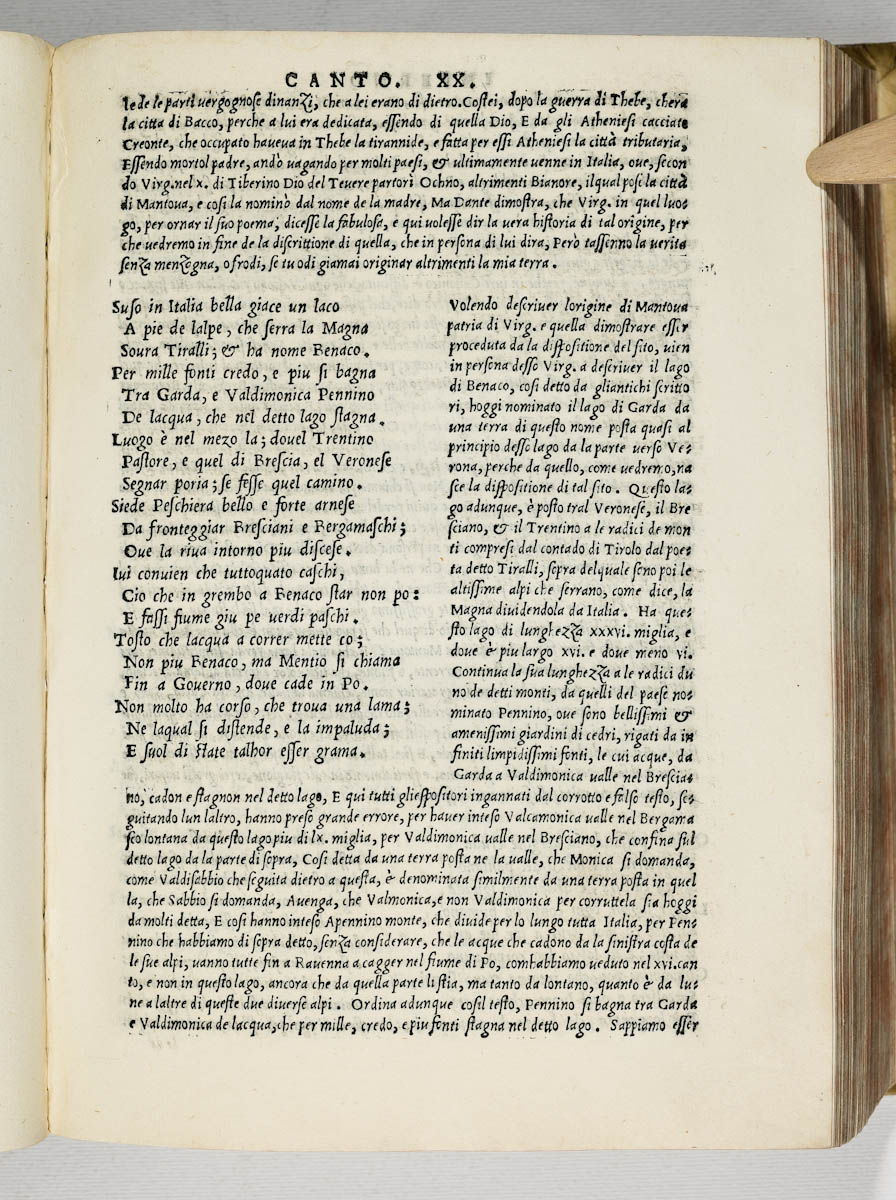 CANTO. XX.
le de le parti uergognose dinanzi, che a lei erano di dietro. Costei, dopo la guerra di Thebe, chera
la citta di Bacco, perche a lui era dedicata, essendo di quella Dio, E da gli Atheniesi cacciato
Creonte, che occupato haueua in Thebe la tirannide, e fatta per essi Atheniesi la città tributaria,
Essendo morto l padre, andò uagando per molti paesi, & ultimamente uenne in Italia, oue, secon
do Virg. nel x. di Tiberino Dio del Teuere partorì Ochno, altrimenti Bianore, il qual pose la città
di Mantoua, e cosi la nominò dal nome de la madre, Ma Dante dimostra, che Virg. in quel luo-
go, per ornar il suo poema, dicesse la fabulosa, e qui uolesse dir la uera historia di tal origine, per
che uedremo in fine de la discrittione di quella, che in persona di lui dira, Però tassenno la uerita
senza menzogna, o frodi, se tu odi giamai originar altrimenti la mia terra.
Suso in Italia bella giace un laco
A pie de lalpe, che serra la Magna
Soura Tiralli; & ha nome Benaco.
Per mille fonti credo, e piu si bagna
Tra Garda, e Valdimonica Pennino
De lacqua, che nel detto lago stagna.
Luogo è nel mezo la; douel Trentino
Pastore, e quel di Brescia, el Veronese
Segnar poria; se fesse quel camino.
Siede Peschiera bello e forte arnese
Da fronteggiar Bresciani e Bergamaschi;
Oue la riua intorno piu discese.
Iui conuien che tuttoquato caschi,
Cio che in grembo a Benaco star non po:
E fassi fiume giu pe uerdi paschi.
Tosto che lacqua a correr mette co;
Non piu Benaco, ma Mentio si chiama
Fin a Gouerno, doue cade in Po.
Non molto ha corso, che troua una lama;
Ne laqual si distende, e la impaluda;
E suol di state talhor esser grama.
Volendo descriuer lorigine di Mantoua
patria di Virg. e quella dimostrare esser
proceduta da la dispositione del sito, uien
in persona desso Virg. a descriuer il lago
di Benaco, cosi detto da gliantichi scritto
ri, hoggi nominato il lago di Garda da
una terra di questo nome posta quasi al
principio desso lago da la parte uerso Ve-
rona, perche da quello, come uedremo, na
sce la dispositione di tal sito. Questo la-
go adunque, è posto tral Veronese, il Bre
sciano, & il Trentino a le radici de mon
ti compresi dal contado di Tirolo dal poe-
ta detto Tiralli, sopra del quale sono poi le
altissime alpi che serrano, come dice, la
Magna diuidendola da Italia. Ha que-
sto lago di lunghezza xxxvi. miglia, e
doue è piu largo xvi. e doue meno vi.
Continua la sua lunghezza a le radici du
no de detti monti, da quelli del paese no-
minato Pennino, oue sono bellissimi &
amenissimi giardini di cedri, rigati da in
finiti limpidissimi fonti, le cui acque, da
Garda a Valdimonica ualle nel Brescia-
no, cadon e stagnon nel detto lago, E qui tutti gliespositori ingannati dal corrotto e falso testo, se-
guitando lun laltro, hanno preso grande errore, per hauer inteso Valcamonica ualle nel Bergama
sco lontana da questo lago piu di lx. miglia, per Valdimonica ualle nel Bresciano, che confina sul
detto lago da la parte di sopra, Cosi detta da una terra posta ne la ualle, che Monica si domanda,
come Valdisabbio che seguita dietro a questa, è denominata similmente da una terra posta in quel
la, che Sabbio si domanda, Auenga, che Valmonica, e non Valdimonica per corruttela sia hoggi
da molti detta, E cosi hanno inteso Apennino monte, che diuide per lo lungo tutta Italia, per Pen-
nino che habbiamo di sopra detto, senza considerare, che le acque che cadono da la sinistra costa de
le sue alpi, uanno tutte fin a Rauenna a cagger nel fiume di Po, comhabbiamo ueduto nel xvi. can
to, e non in questo lago, ancora che da quella parte li stia, ma tanto da lontano, quanto è da lu-
ne a laltre di queste due diuerse alpi. Ordina adunque cosil testo, Pennino si bagna tra Garda
e Valdimonica de lacqua, che per mille, credo, e piu fonti stagna nel detto lago. Sappiamo esser